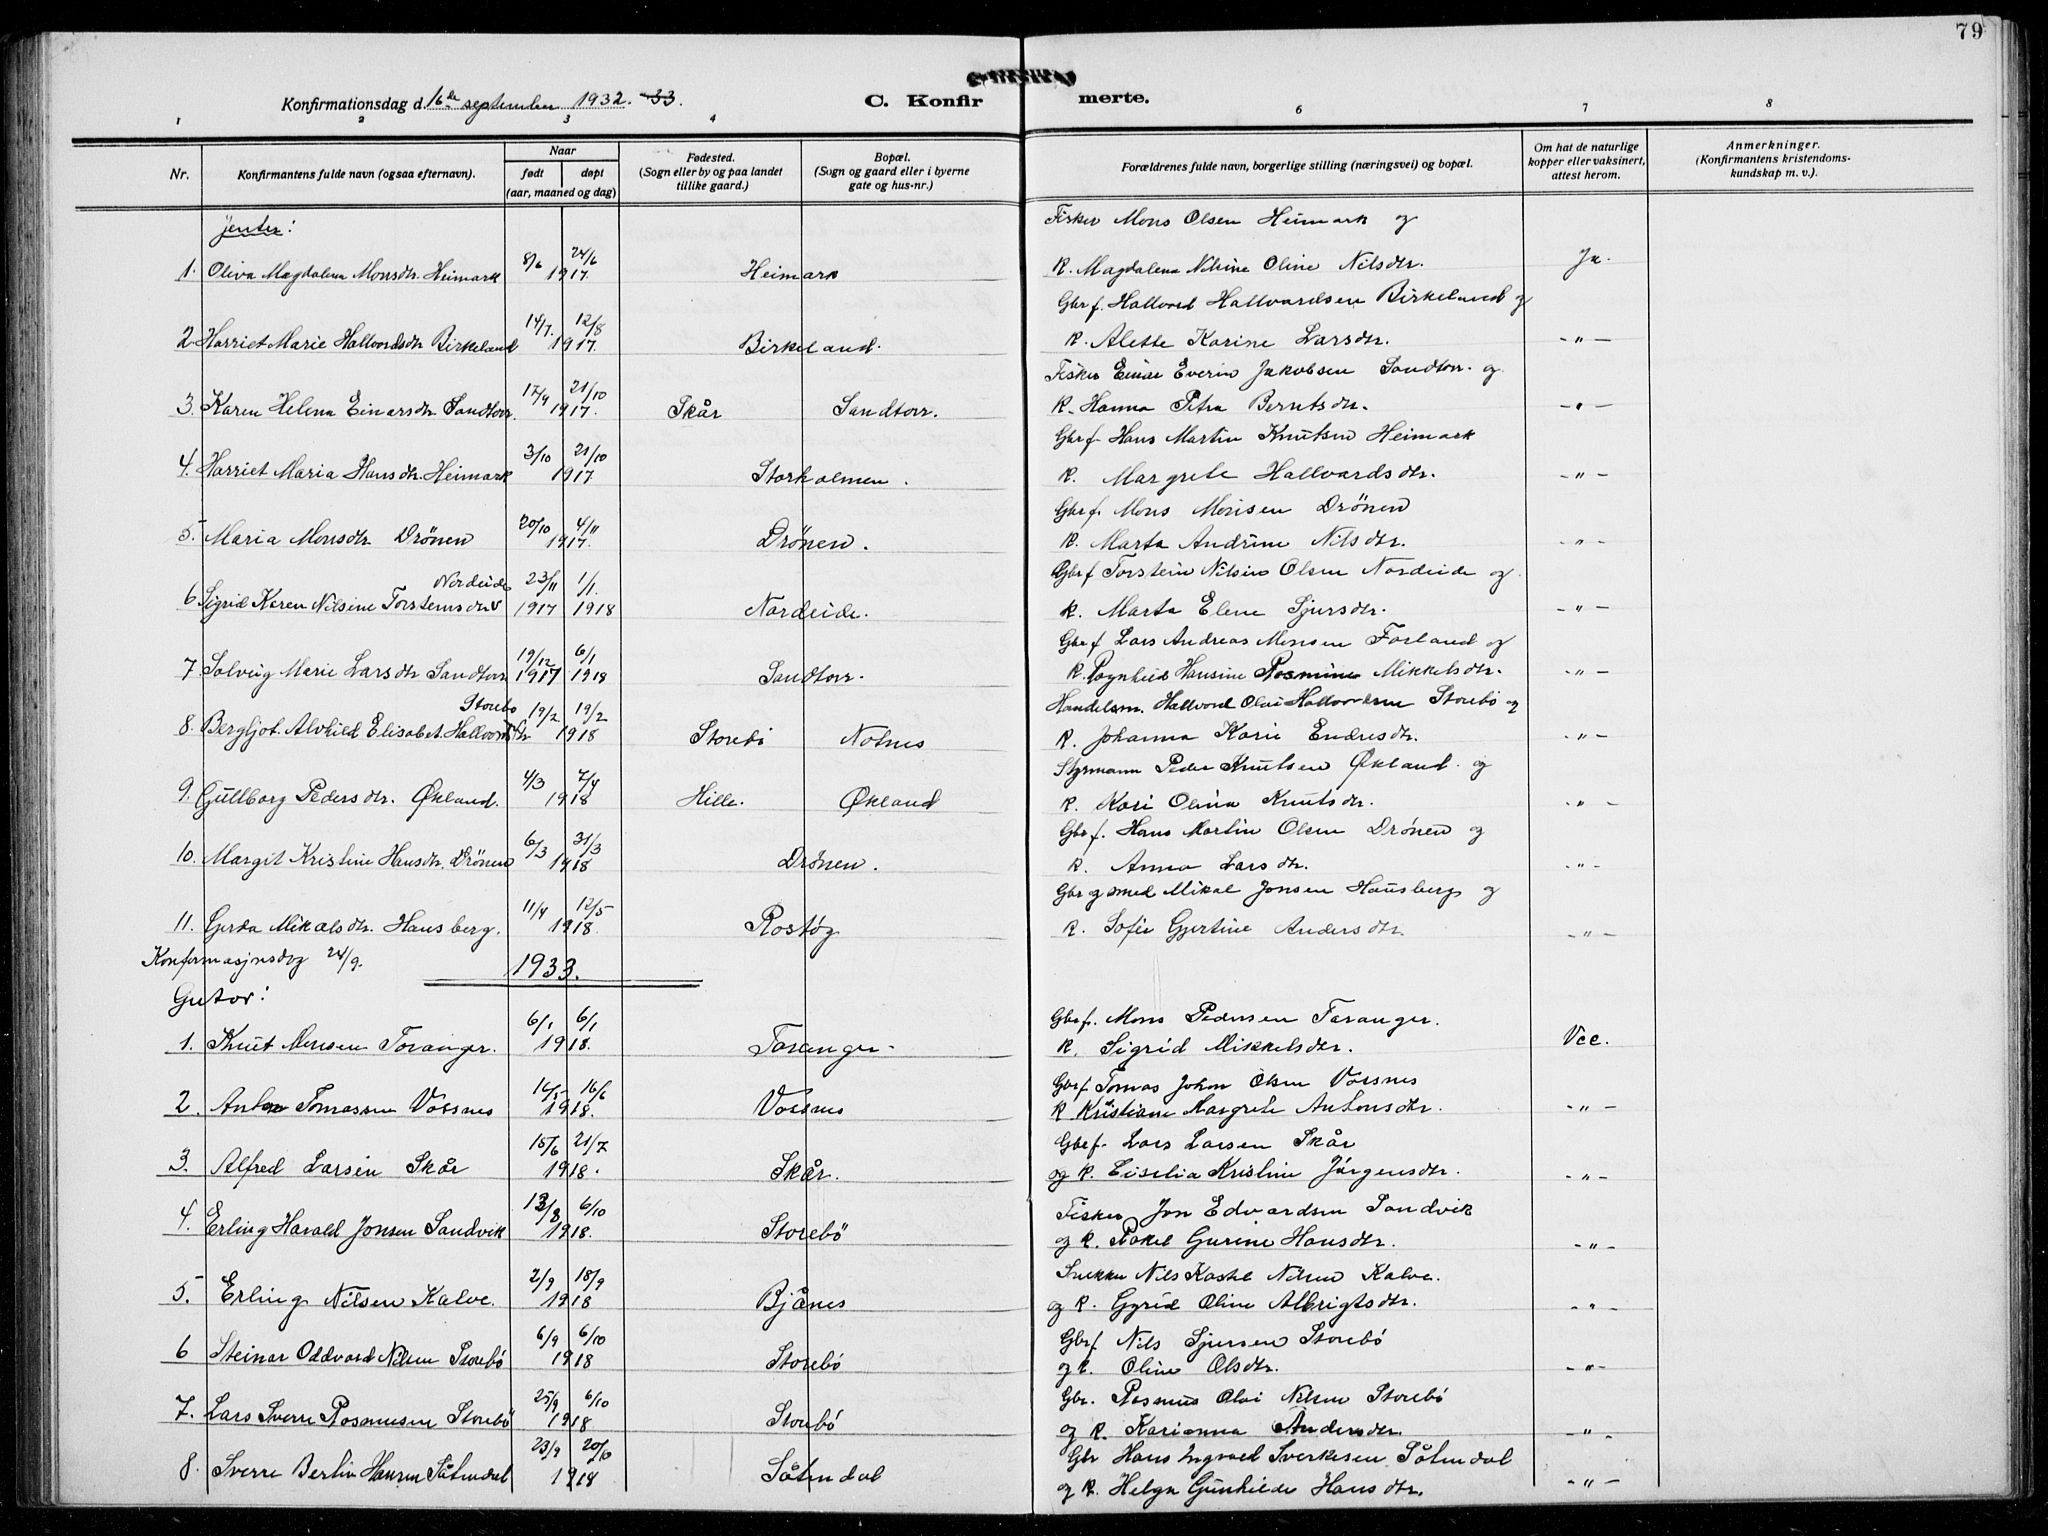 79
Konfirmationsdag d. 16de september 1932. -33.
C. Konfir merte.
1 2 3 4 6 7 8
Nr. Konfirmantens fulde navn (ogsaa efternavn). Naar født døpt (aar, maaned og dag) Fødested. (Sogn eller by og paa landet tillike gaard.) Bopæl. (Sogn og gaard eller i byerne gate og hus-nr.) Forældrenes fulde navn, borgerlige stilling (næringsvei) og bopæl. Om hat de naturlige kopper eller vaksinert, attest herom. Anmerkninger. (Konfirmantens kristendoms-kundskap m. v.).
Jenter:
Fisker Mons Olsen Heimark og
1. Oliva Magdalena Monsdtr. Heimark 8/6 24/6 1917. Heimark K. Magdalena Nilsine Oline Nilsdtr. Ja.
Gbr f. Hallvord Hallvardsen Birkeland og
2 Harriet Marie Hallvordsdtr Birkeland 14/7. 12/8 1917. Birkeland. K. Alette Karine Larsdtr. -"-
Fisker Einar Everin Jakobsen Sandtorr. og
3. Karen Helena Einarsdtr. Sandtorr. 17/9 21/10 1917. Skår Sandtorr. K. Hanna Petra Berntsdtr. -"-
Gbr f. Hans Martin Knutsen Heimark
4. Harriet Maria Hansdtr. Heimark 3/10 21/10 1917. Storholmen. K. Margrete Hallvardsdtr. -"-
Gbr f. Mons Monsen Drönen
5. Maria Monsdtr Drönen 20/10 4/11 1917. Drönen. K. Marta Andrine Nilsdtr. -"-
Gbr f Torstein Nilsen Olsen Nordeide og
6. Sigrid Karen Nilsine Torsteinsdtr Nordeide 23/11 1917 1/1. 1918 Nordeide. K. Marta Elene Sjursdtr. -"-
Gbr f Lars Andreas Monsen Forland og
7 Solveig Marie Larsdtr Sandtorr 19/12 1917 6/1 1918 Sandtorr. K. Ragnheid Hansine Rasmine Mikkelsdtr. -"-
Handelsm. Hallvord Olai Hallvordsen Storebö og
8. Bergljot Alvhild Elisabet Hallvordsdtr Storebö 19/2 19/2 1918 Storebö Notnes K. Johanna Karie Endresdtr. -"-
Styrmann Peder Knutsen Økland. og
9. Gullborg Pedersdtr. Økland. 4/3 7/4 1918 Hille. Økland K. Kari Olina Knutsdtr. -"-
Gbr f. Hans Martin Olsen Drönen og
10. Margit Kristine Hansdtr. Drönen 6/3 31/3 1918 Drönen. K. Anna Larsdtr. -"-
Gbr og smed Mikal Jonsen Hausberg og
11. Gerda Mikalsdtr. Hausberg. 11/4 12/5 1918 Rostøy K. Sofie Gjertine Andersdtr. -"-
Konfirmasjonsdag 24/9. 1933.
Gutar:
Gbr f. Mons Pedersen Taranger.
1. Knut Monsen Toranger. 6/1 6/1 1918. Toranger. K. Sigrid Mikkelsdtr. Vcc.
Gbr f Tomas Johan Olsen Vorsnes
2. Anton Tomassen Vorsnes 16/5 16/6 1918. Vorsnes K Kristiane Margrete Antonsdtr. -"-
Gbr f. Lars Larsen Skår
3. Alfred Larsen Skår 15/6 21/7 1918. Skår. og K. Cisilia Kristine Jörgensdtr. -"-
Fisker Jon Edvardsen Sandvik
4. Erling Harald Jonsen Sandvik 13/8 6/10 1918. Storebö og K. Rakel Gurine Hansdtr. -"-
Snekker Nils Kastel Nilsen Kalve.
5. Erling Nilsen Kalve. 2/9 18/9 1918 Bjånes og K. Gyrid Oline Albrigtsdtr. -"-
Gbr f Nils Sjursen Storebö
6 Steinar Oddvard Nilsen Storebö 6/9 6/10 1918 Storebö og K. Oline Olsdtr. -"-
Gbr. Rasmus Olai Nilsen Storebö
7. Lars Sverre Rasmussen Storebö 25/9 6/10 1918 Storebö og K. Karianna Andersdtr. -"-
Gbr Hans Ingvald Sverkesen Såtendal
8. Sverre Bertin Hansen Såtendal 23/9 20/10 1918 Såtendal og K. Helga Gunhilde Hansdtr. -"-